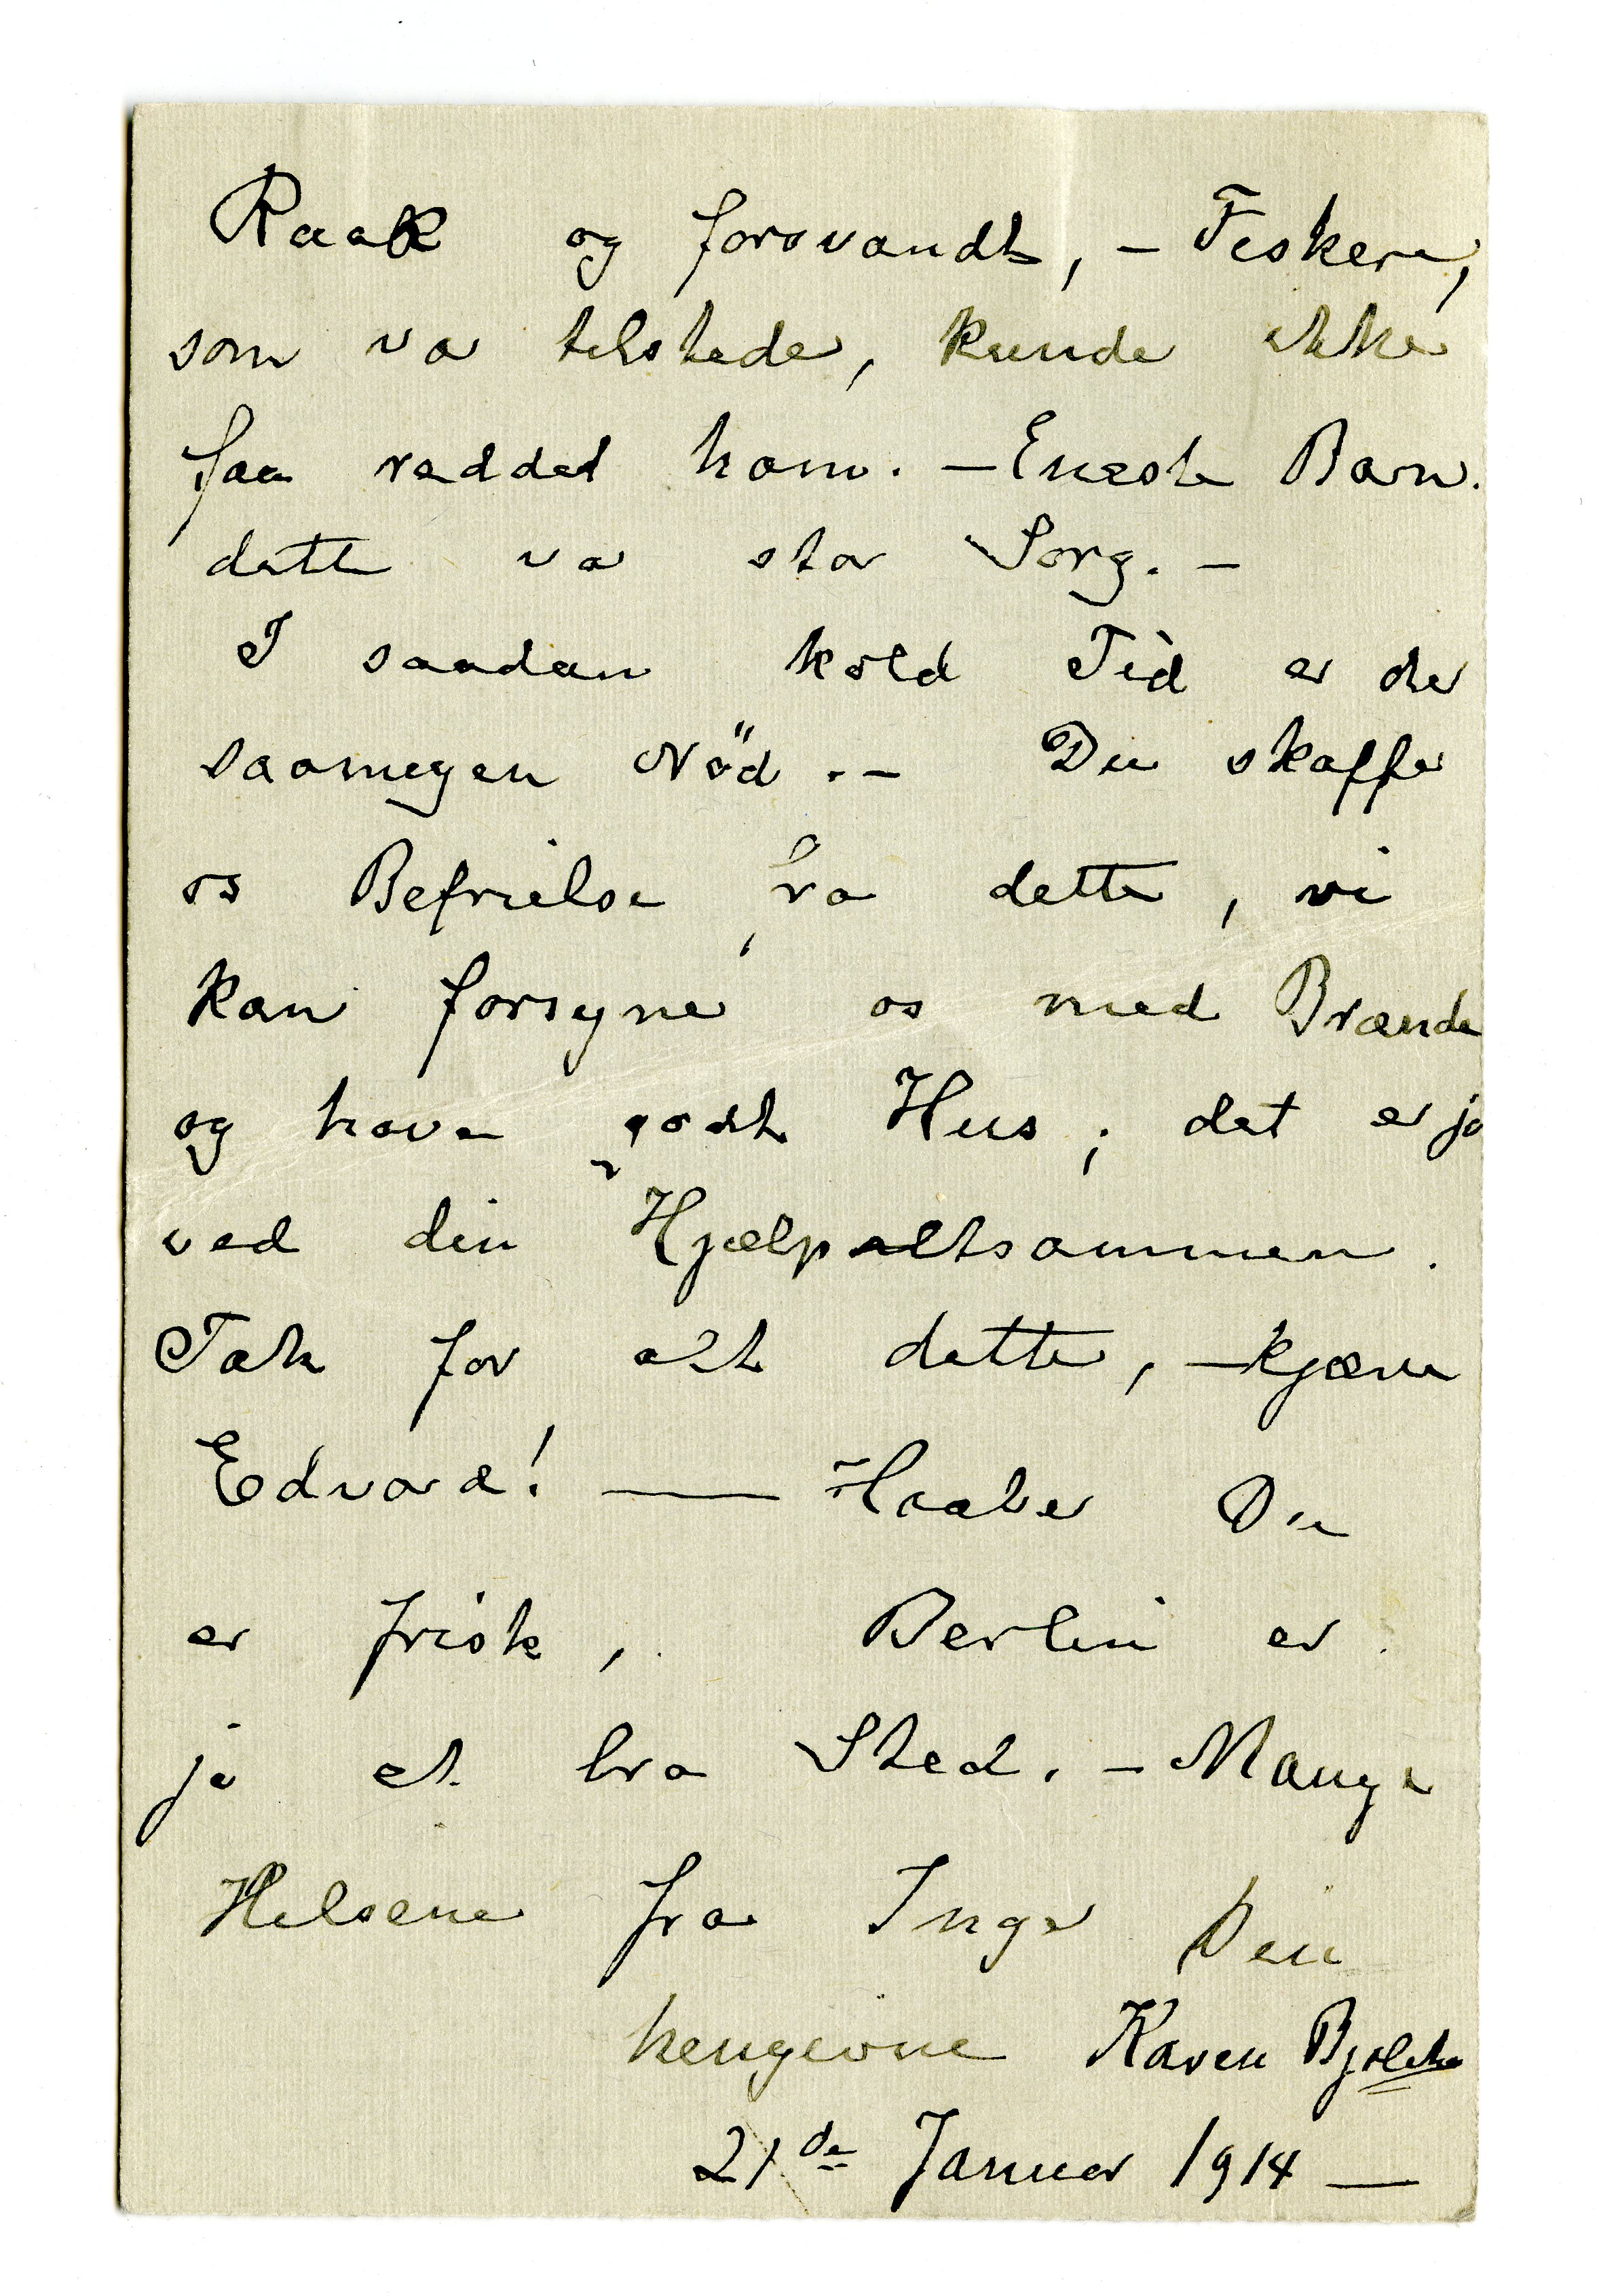 Raak og forsvandt, – Fiskere,
som va tilstede, kunde ikke
faa reddet ham. – Eneste Barn.
dette va stor Sorg. –
I saadan kold Tid er der
saamegen Nöd. – Du skaffer
os Befrielse fra dette, vi
kan forsyne os med Brænde
og have godt Hus; det er jo
ved din Hjælp altsammen.
Tak for alt dette, – kjære
Edvard! — Haaber Du
er frisk, Berlin er
jo et bra Sted. – Mange
Helsene fra Inger Den
hengivne Karen Bjølstad
21de Januar 1914 —